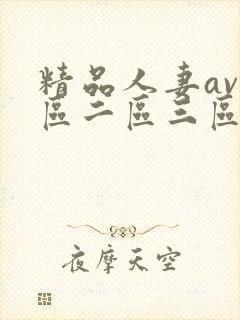 精品人妻av
區二區三區
夜摩天空